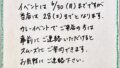 イベントは 6/30(月)までですが
当店は 28(土)までとなります。
カレンイベントでご来店の方は
事前にご連絡いただけると
スムーズにご案内できます。
お気軽にご連絡下さい。